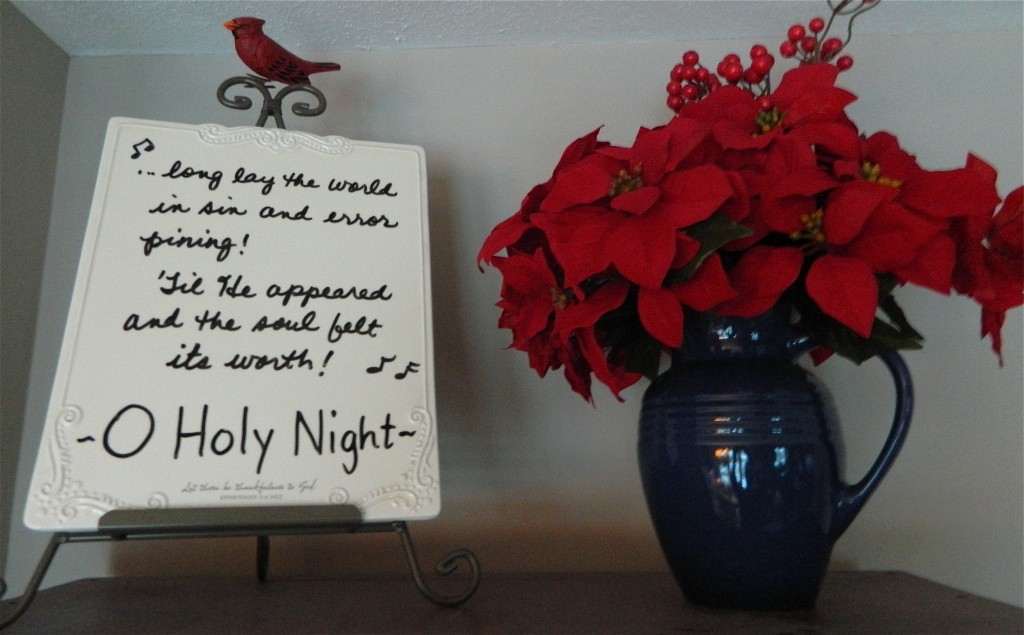 ... long lay the world
in sin and error
pining!
'Til He appeared
and the soul felt
its worth!
~O Holy Night~
Let there be thankfulness to God.
EPHESIANS 5:4 NLT